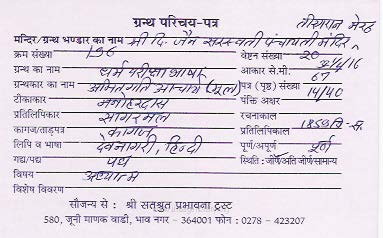 ग्रन्थ परिचय-पत्र
तीरगरान मेरठ
मन्दिर/ग्रन्थ भण्डार का नाम श्री दि. जैन सरस्वती पंचायती मंदिर
क्रम संख्या 196 वेष्टन संख्या 20
ग्रन्थ का नाम धर्म परीक्षा भाषा आकार से.मी.
ग्रन्थकार का नाम अमितगति आचार्य (मूल) पत्र (पृष्ठ) संख्या 67
टीकाकार मनोहरदास पंक्ति अक्षर 14/40
प्रतिलिपिकार सागरमल रचनाकाल
कागज/ताड़पत्र कागज प्रतिलिपिकाल 1859 वि. सं.
लिपि व भाषा देवनागरी, हिन्दी पूर्ण/अपूर्ण पूर्ण
गद्य/पद्य पद्य स्थिति : जीर्ण/अति जीर्ण/सामान्य
विषय अध्यात्म
विशेष विवरण
सौजन्य से : श्री सतश्रुत प्रभावना ट्रस्ट
580, जूनी माणक वाडी, भाव नगर - 364001 फोन : 0278 - 423207